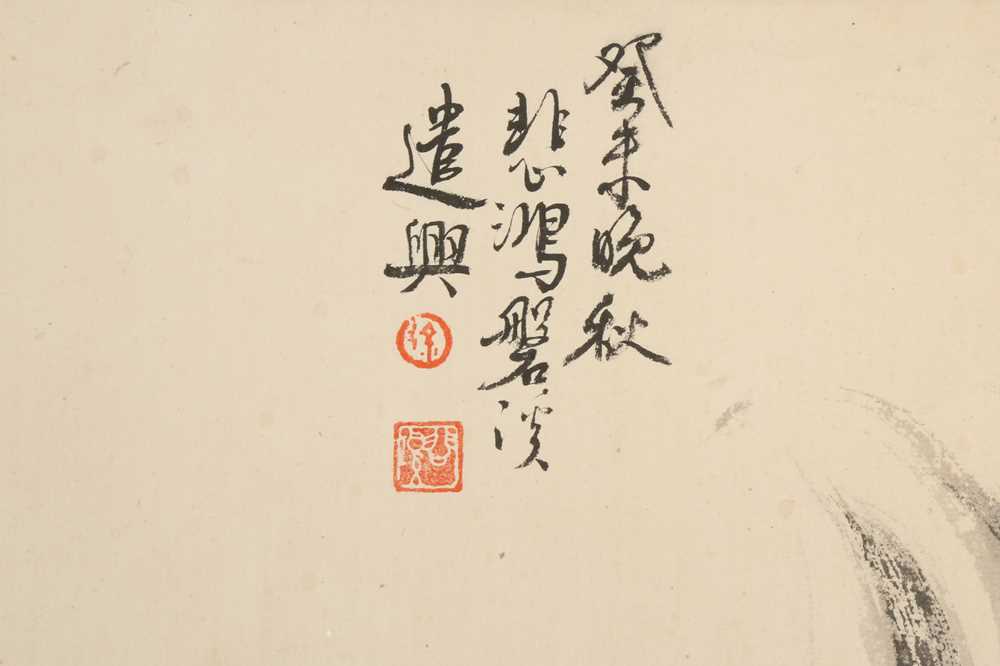 癸未晚秋
悲鴻磐溪
遣興
徐